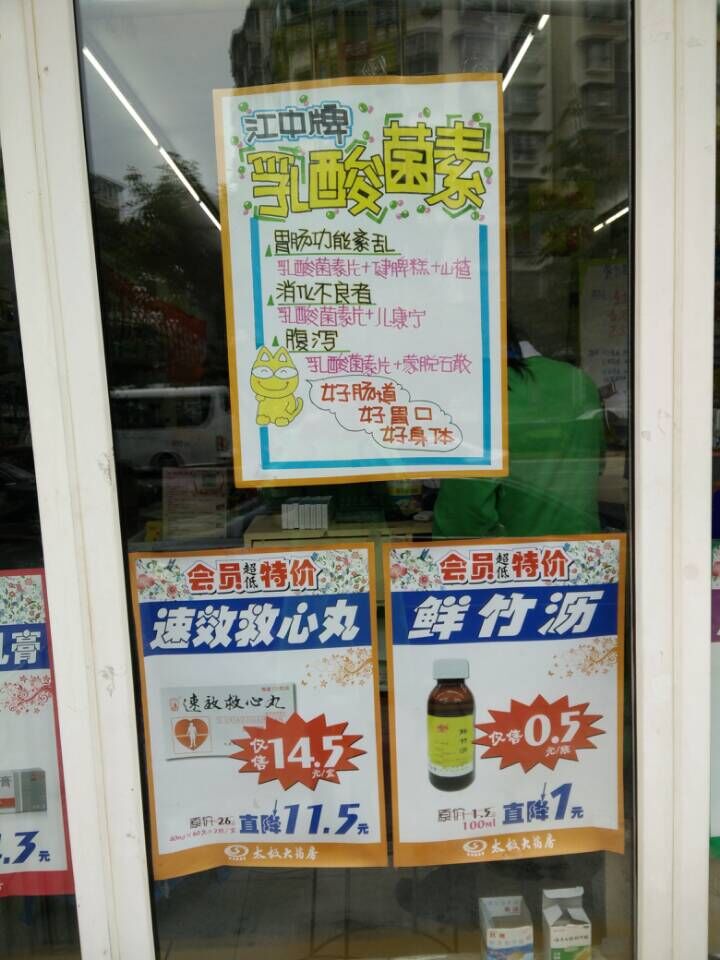 江中牌
乳酸菌素
胃肠功能紊乱
乳酸菌素片+健脾糕+山楂
消化不良者
乳酸菌素片+儿康宁
腹泻
乳酸菌素片+蒙脱石散
好肠道
好胃口
好身体
会员超低特价
速效救心丸
速效救心丸
仅售14.5元/盒
原价26
直降11.5元
40mg×60丸×2瓶/盒
太极大药房
会员超低特价
鲜竹沥
鲜竹沥
仅售0.5元/瓶
原价1.5
直降1元
100ml
太极大药房
乳膏
膏
.3元